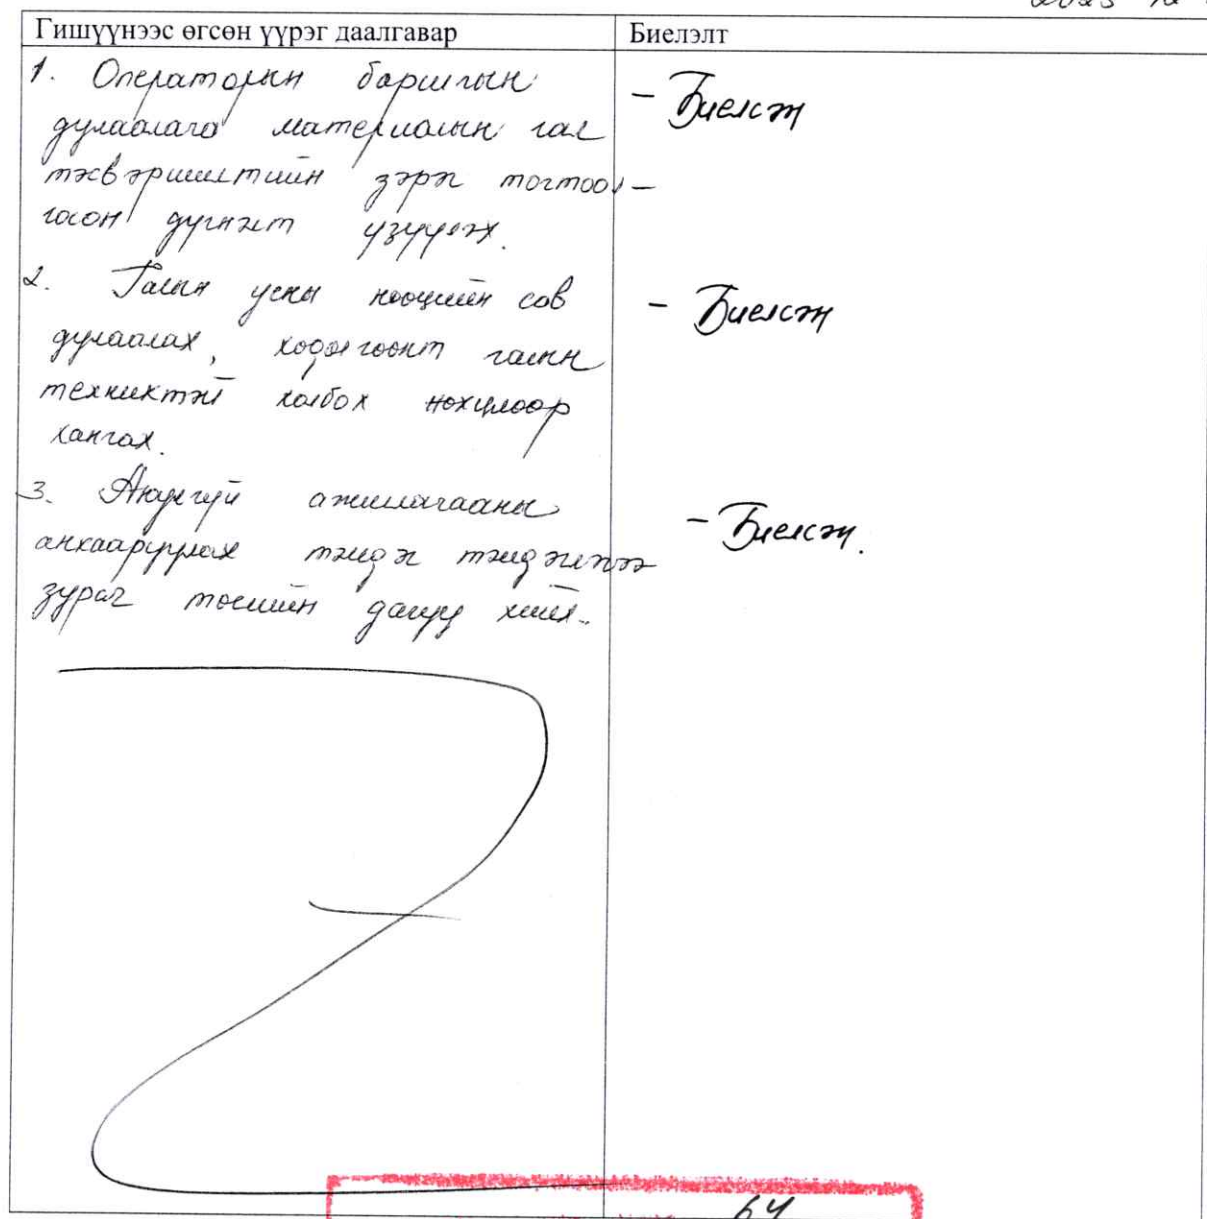 2023 12
Гишүүнээс өгсөн үүрэг даалгавар
Биелэлт
1. Операторын барилгын
дулаалага материалын гал
тэсвэршилтийн зэрэг тогтоо-
госон дүгнэлт үзүүлэх.
- Биелсэн
-
2. Галын усны нөөцийн сав
дулаалах, хөдөлгөөнт галын
техниктэй холбох нөхцлөөр
хангах.
- Биелсэн
3. Аюулгүй ажиллагааны
анхааруулах тэмдэг тэмдэглэгээ
зураг төслийн дагуу хийх.
- Биелсэн.
64